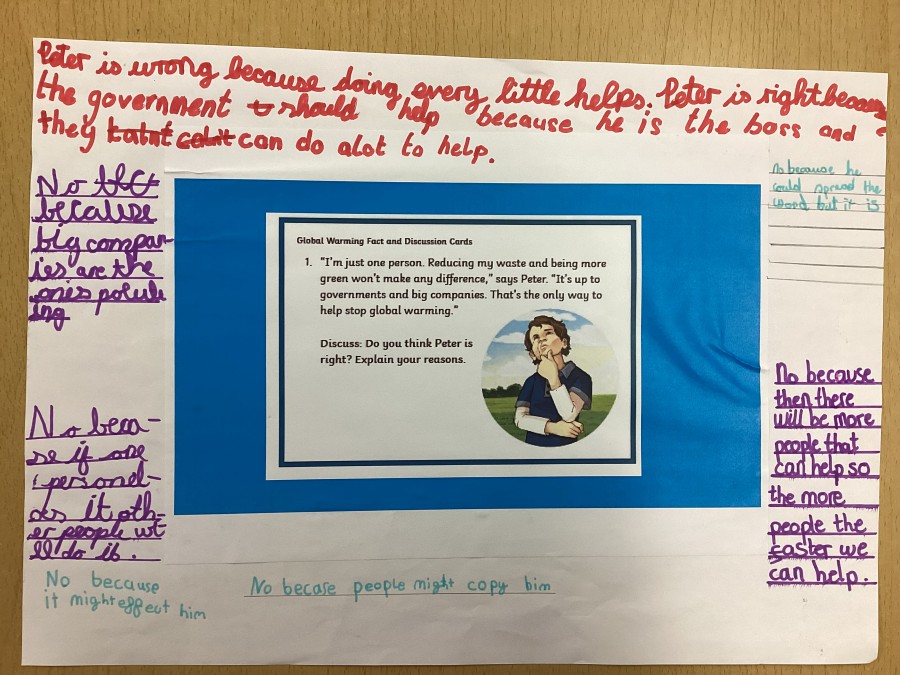 Peter is wrong because doing every little helps. Peter is right because
the government should help because he is the boss and
they can do alot to help.
No
because
big compan-
ies are the
ones polute
ing
No beca-
se if one
personel-
oes it oth-
er people wi
ll do it.
No because
it might effect him
No becase people might copy him
No because he
could spread the
word but it is
No because
then there
will be more
people that
can help so
the more
people the
easter we
can help.
Global Warming Fact and Discussion Cards
1. "I'm just one person. Reducing my waste and being more
green won't make any difference," says Peter. "It's up to
governments and big companies. That's the only way to
help stop global warming."
Discuss: Do you think Peter is
right? Explain your reasons.